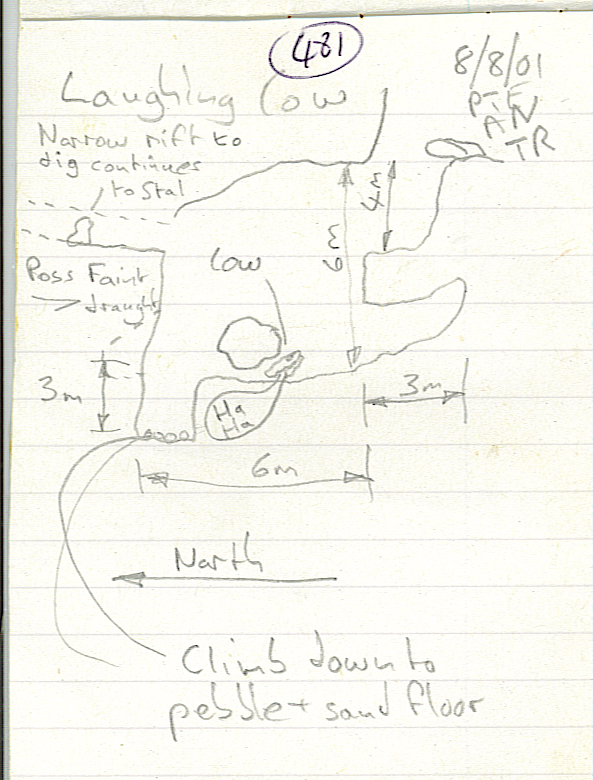 481
8/8/01
Laughing Cow
AN
TR
Narrow rift to
dig continues
to Stal
4m
Cow
Poss Faint
draught
3m
Ha
Ha
3m
6m
North
Climb down to
pebble + sand floor